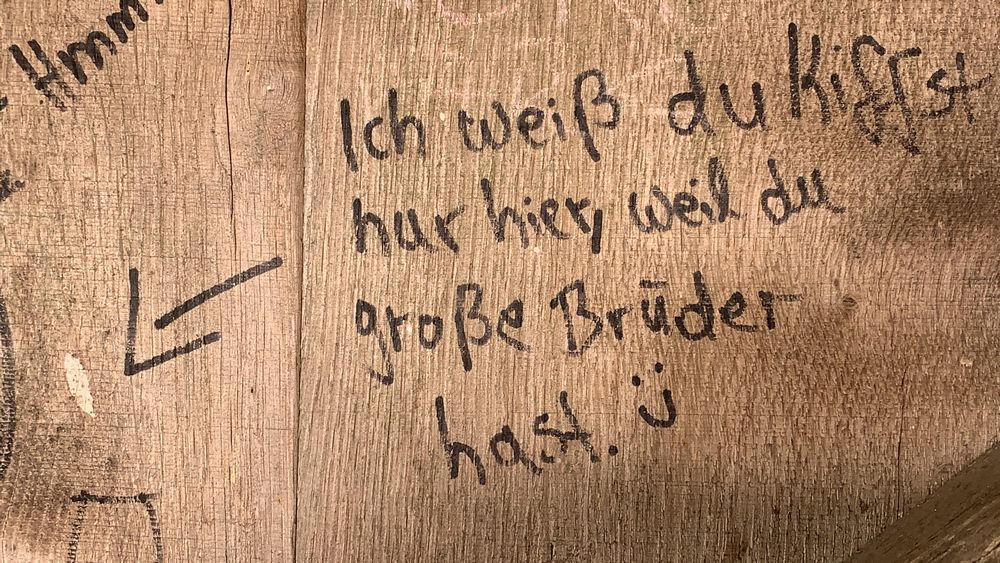 Hmm
Ich weiß du kiffst
nur hier, weil du
große Brüder
hast. Ü